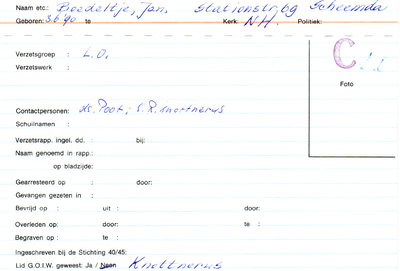 Naam etc.: Boedeltje, Jan, Stationstr, bg Scheemda
Geboren: 3.6.'90 te Kerk: N.H. Politiek:
Verzetsgroep : L.O.
Verzetswerk :
C
Foto
Contactpersonen: ds. Poot; S.R. Knottnerus
Schuilnamen :
Verzetsrapp. ingel. dd. : bij:
Naam genoemd in rapp.:
op bladzijde:
Gearresteerd op : door:
Gevangen gezeten in :
Bevrijd op : uit : door:
Overleden op: door: te :
Begraven op : te :
Ingeschreven bij de Stichting 40/45:
Lid G.O.I.W. geweest: Ja / Neen Knottnerus